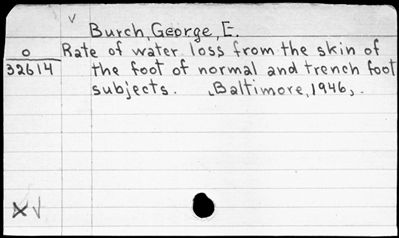 v
Burch, George, E.
o Rate of water loss from the skin of
32614 the foot of normal and trench foot
subjects. [Baltimore, 1946].